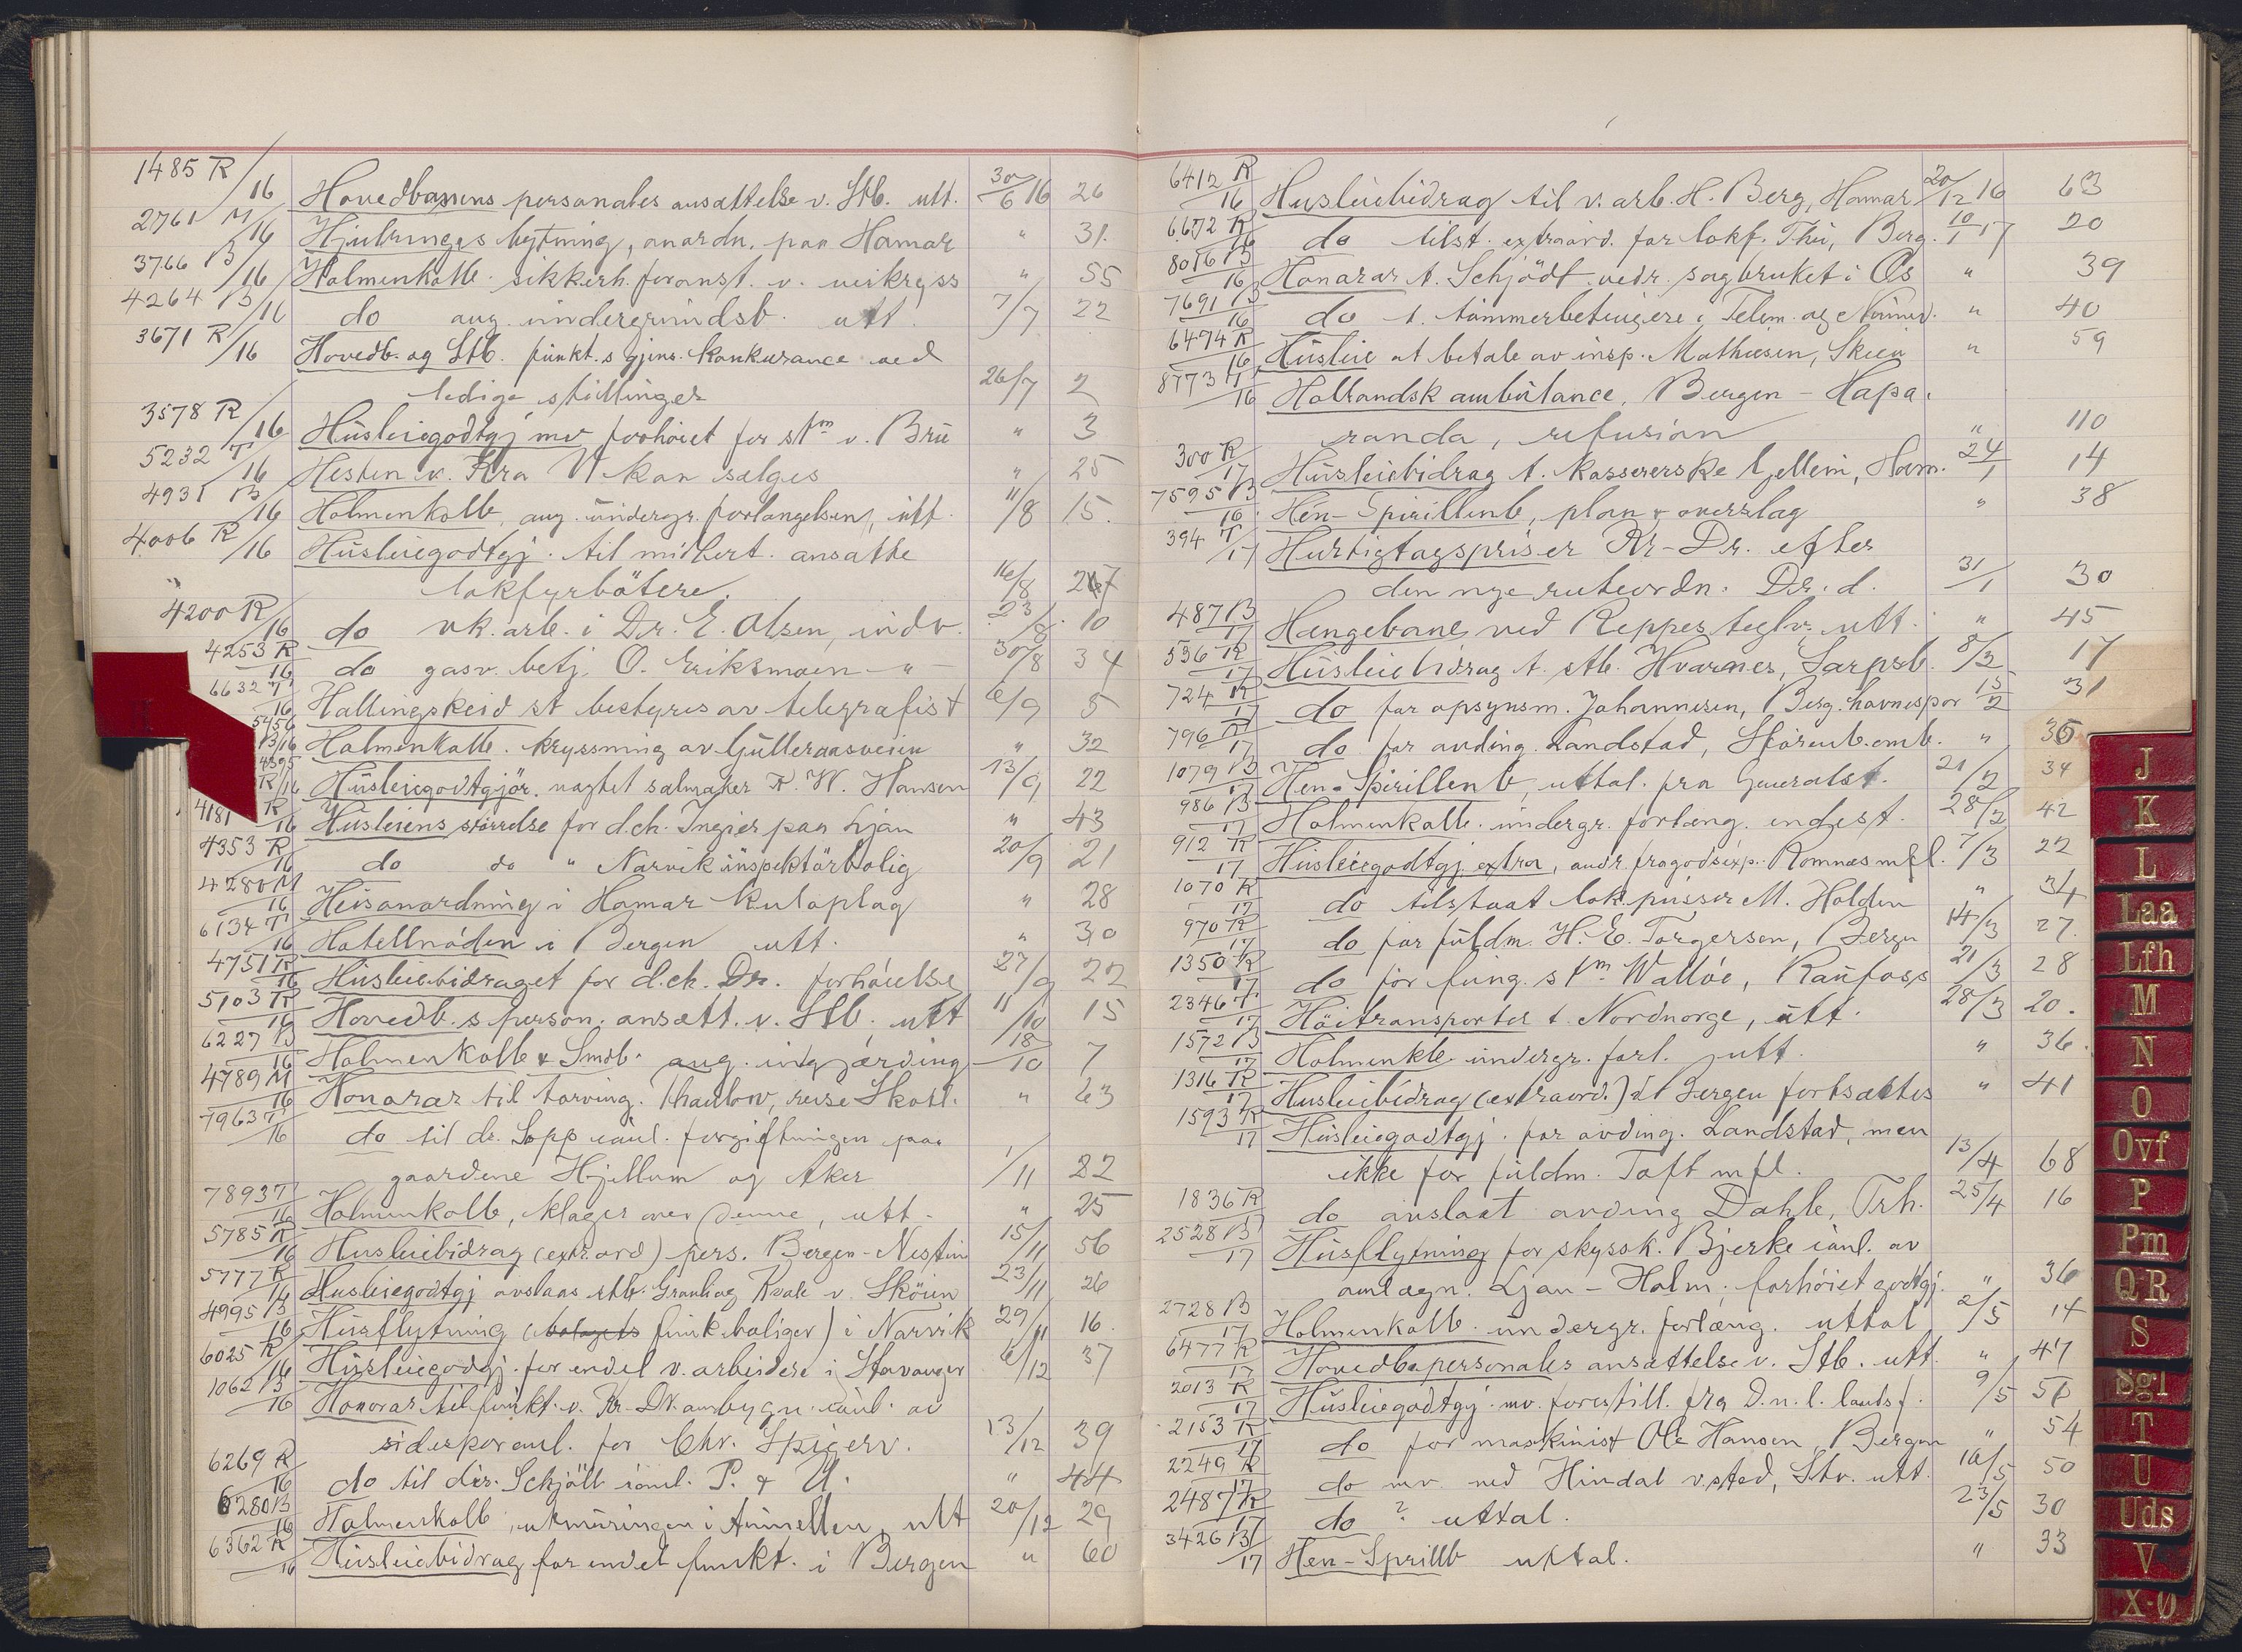 1485 R/16 Hovedbanens personales ansættelse v. Stb. utt. 30/6 16 26
2761 M/16 Hjulringes bytning, anordn. paa Hamar " 31.
3766 B/16 Holmenkolb. sikkerh. foranst. v. veikryss " 55
4264 B/16 do ang. undergrundsb. utt 7/7 22
3671 R/16 Hovedb. og Stb. funkt.s gjens. konkurance ved
ledige stillinger 26/7 2
3578 R/16 Husleiegodtgj mv forhøiet for stm v. Bru " 3
5232 T/16 Hesten v. Kra V kan sælges " 25
4931 B/16 Holmenkolb. ang. undergr. forlængelsen, utt. 11/8 15.
4006 R/16 Husleiegodtgj. til midlert. ansatte
lokfyrbøtere. 16/8 27
4200 R/16 do vk. arb. i Dr. E. Olsen, indv. 23/8. 10
4253 R/16 do gasv. betj. O. Eriksmoen - " - 30/8 34
6632 T/16 Hallingskeid st bestyres av telegrafist 6/9 5
5456 B/16 Holmenkolb. kryssning av Gulleraasveien " 32
4395 R/16 Husleiegodtgjør. nægtet salmaker K. W. Hansen 13/9 22
4181 R/16 Husleiens størrelse for d.ch. Ingier paa Ljan " 43
4353 R/16 do do " Narvik inspektørbolig 20/9 21
4280 M/16 Heisanordning i Hamar kuloplag " 28
6134 T/16 Hotellnøden i Bergen utt. " 30
4751 R/16 Husleiebidraget for d.ch. Dr. forhøielse 27/9 22
5103 R/16 Hovedb.s person. ansætt. v. Stb. utt 11/10 15
6227 B/16 Holmenkolb & Smdb. ang. indgjærding 18/10 7
4789 M/16 Honorar til torving. Thaulow, reise Skotl. " 23
7963 T/16 do til dr. Sopp ianl. forgiftningen paa
gaardene Hjellum og Aker 1/11 22
7893 T/16 Holmenkolb, klager over denne, utt. " 25
5785 R/16 Husleiebidrag (extr.ord) pers. Bergen-Nestun 15/11 56
5777 R/16 Husleiegodtgj avslaas stb. Granli og Kvale v. Skøien 23/11 26
4995 B/16 Husflytning (funk boliger) i Narvik 29/11 16.
6025 R/16 Husleiegodtgj. for endel v. arbeidere i Stavanger 6/12 37
1062 B/16 Honorar til funkt. v. Kr-Dr. ombygn. ianl. av
sidesporanl. for Chr. Spigerv. 13/12 39
6269 R/16 do til dir. Schjött ianl. P. & U. " 44
6280 B/16 Holmenkolb, utmuringen i tunnellen, utt 20/12 29
6362 R/16 Husleiebidrag for endel funkt. i Bergen " 60
6412 R/16 Husleiebidrag til v. arb. H. Berg, Hamar 20/12 16 63
6672 R/16 do tilst. extraord. for lokf. Thu, Berg. 10/1 17 20
8016 B/16 Honorar t. Schjödt vedr. sagbruket i Os " 39
7691 B/16 do t. tømmerbetingere i Telem. og Numed. " 40
6494 R/16 Husleie at betale av insp. Mathiesen, Skien " 59
8773 T/16 Hollandsk ambulance, Bergen - Hapa-
randa, refusion " 110
300 R/17 Husleiebidrag t. kassererske Gjellein, Ham. 24/1 14
7595 B/16 Hen-Spirillenb, plan & overslag " 38
394 T/17 Hurtigtogspriser Kr-Dr. efter
den nye ruteordn. Dr. d. 31/1 30
487 B/17 Hængebane ved Reppes teglv. utt. " 45
536 R/17 Husleiebidrag t. stb. Hvarnes, Sarpsb. 8/2 17
724 R/17 do for opsynsm. Johannesen, Berg. havnespor 15/2 31
796 R/17 do for avding. Landstad, Størenb.omb. " 36
1079 B/17 Hen-Spirillenb, uttal. fra Generalst. 21/2 34
986 B/17 Holmenkolb. undergr. forlæng. endest. 28/2 42
912 R/17 Husleiegodtgj. extra, andr. fra godsexp. Romnæs mfl. 7/3 22
1070 R/17 do tilstaat lok.pusser M. Holden " 34
970 R/17 do for fuldm. H. E. Torgersen, Bergen 14/3 27.
1350 R/17 do for fung. stm. Walløe, Raufoss 21/3 28
2346 T/17 Høitransporter t. Nordnorge, utt. 28/3 20.
1572 B/17 Holmenklb. undergr. forl. utt. " 36.
1316 R/17 Husleiebidrag (extraord.) i Bergen fortsættes " 41
1593 R/17 Husleiegodtgj. for avding. Landstad, men
ikke for fuldm. Toft mfl. 13/4 68
1836 R do avslaat avding Dahle, Trh. 25/4 16
2528 B/17 Husflytning for skyssk. Bjerke ianl. av
omlægn. Ljan - Holm; forhøiet godtgj. " 36
2728 B/17 Holmenkolb. undergr. forlæng. uttal 2/5 14
6477 R/17 Hovedbapersonales ansættelse v. Stb. utt. " 47
2013 R/17 Husleiegodtgj. mv. forestill. fra D.n.l. landsf. 9/5 51
2153 R/17 do for maskinist Ole Hansen, Bergen " 54
2249 R/17 do mv. ved Hindal v.sted, Stv. utt. 16/5 50
2487 R/17 do ? uttal. 23/5 30
3426 B/17 Hen-Sprillb uttal. " 33
H
J
K
L
Laa
Lfh
M
N
O
Ovf
P
Pm
QR
S
Sgl
T
U
Uds
V
X-Ø